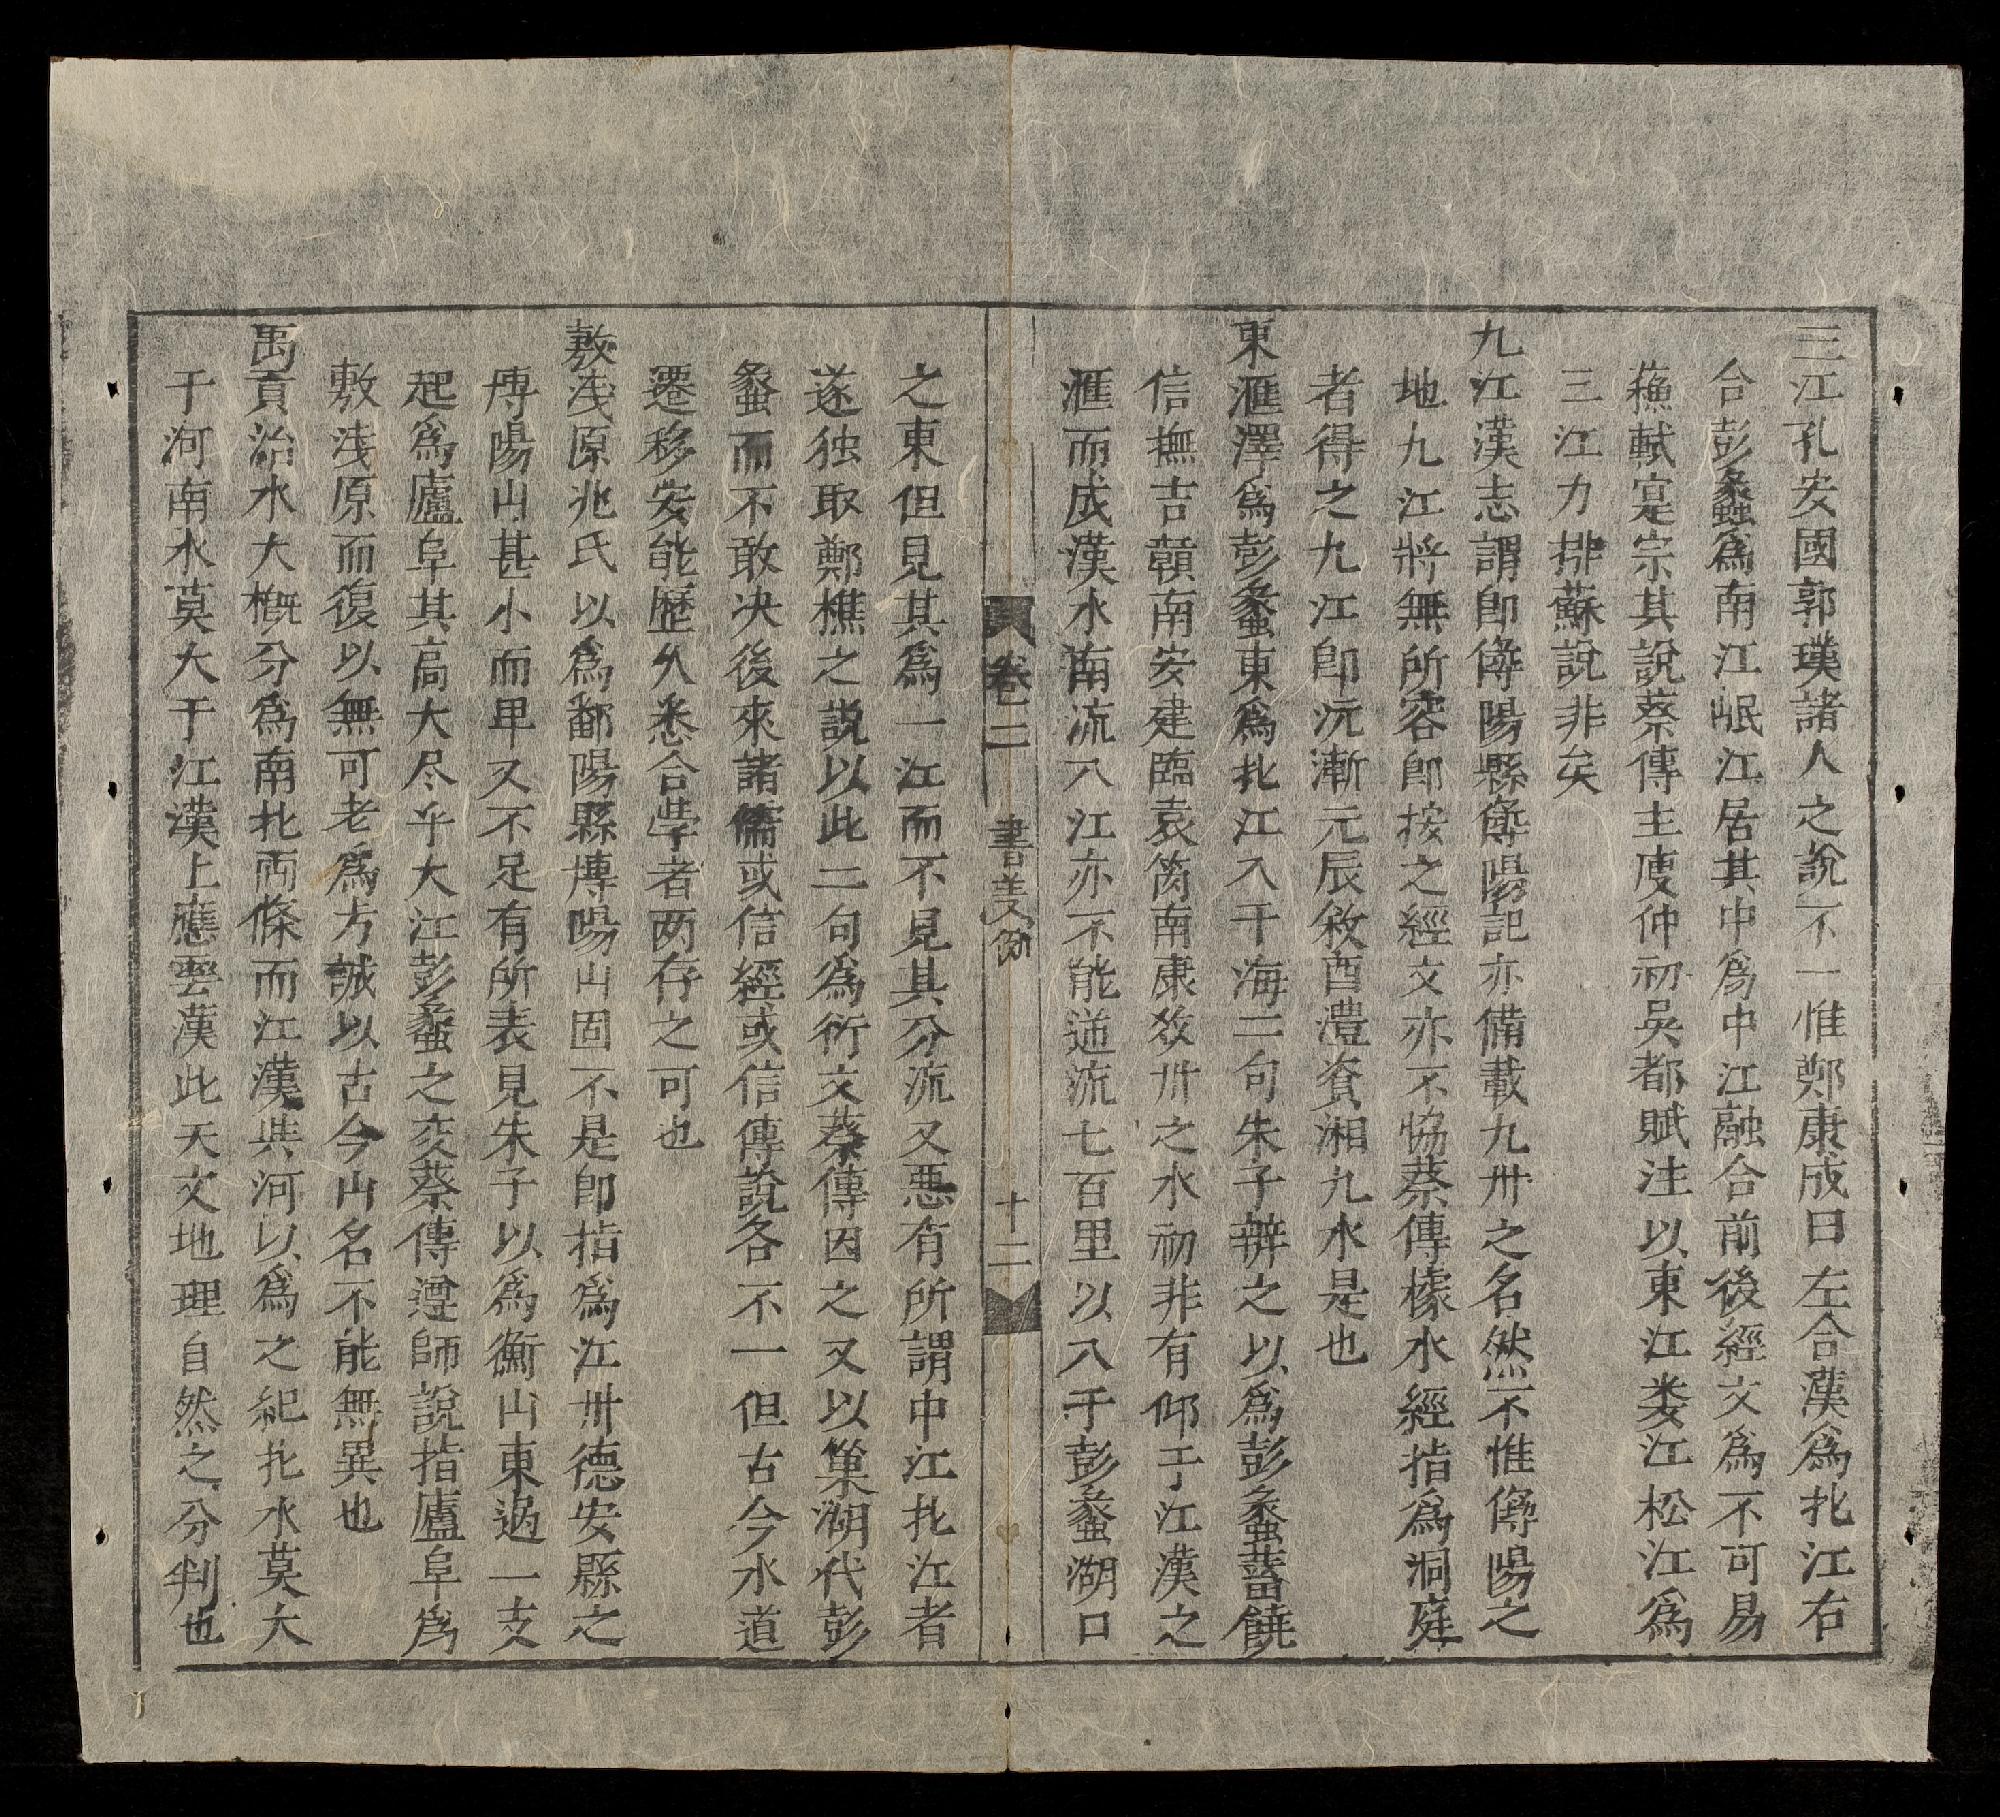 三江孔安國郭璞諸人之說不一惟鄭康成曰左合漢爲北江右
合彭蠡爲南江岷江居其中爲中江融合前後經文爲不可易
蘓軾寔宗其說蔡傳主庾仲初吳都賦注以東江娄江松江爲
三江力排蘇說非矣
九江漢志謂卽潯陽縣潯陽記亦備載九卅之名然不惟潯陽之
地九江將無所容卽按之經文亦不恊蔡傳據水經指爲洞庭
者得之九江卽沅漸元辰敘酉澧資湘九水是也
東滙澤爲彭蠡東爲北江入于海二句朱子辨之以爲彭蠡蕃饒
信撫吉贑南安建臨袁筠南康敎卅之水初非有仰于江漢之
滙而成漢水南流入江亦不能逆流七百里以入于彭蠡湖口
卷二 書 十二
之東但見其爲一江而不見其分流又悪有所謂中江北江者
遂独取鄭樵之説以此二句爲衍文蔡傳因之又以巢湖代彭
蠡而不敢决後來諸儒或信經或信傳說各不一但古今水道
遷移安能歷久悉合學者两存之可也
敷浅原兆氏以爲鄱陽縣博陽山固不是卽指爲江卅德安縣之
博陽山甚小而卑又不足有所表見朱子以爲衡山東過一支
起爲廬阜其高大尽乎大江彭蠡之交蔡傳遵師說指廬阜爲
敷浅原而復以無可老爲方誠以古今山名不能無異也
禹貢治水大槪分爲南北両條而江漢共河以爲之紀北水莫大
于河南水莫大于江漢上應雲漢此天文地理自然之分判也